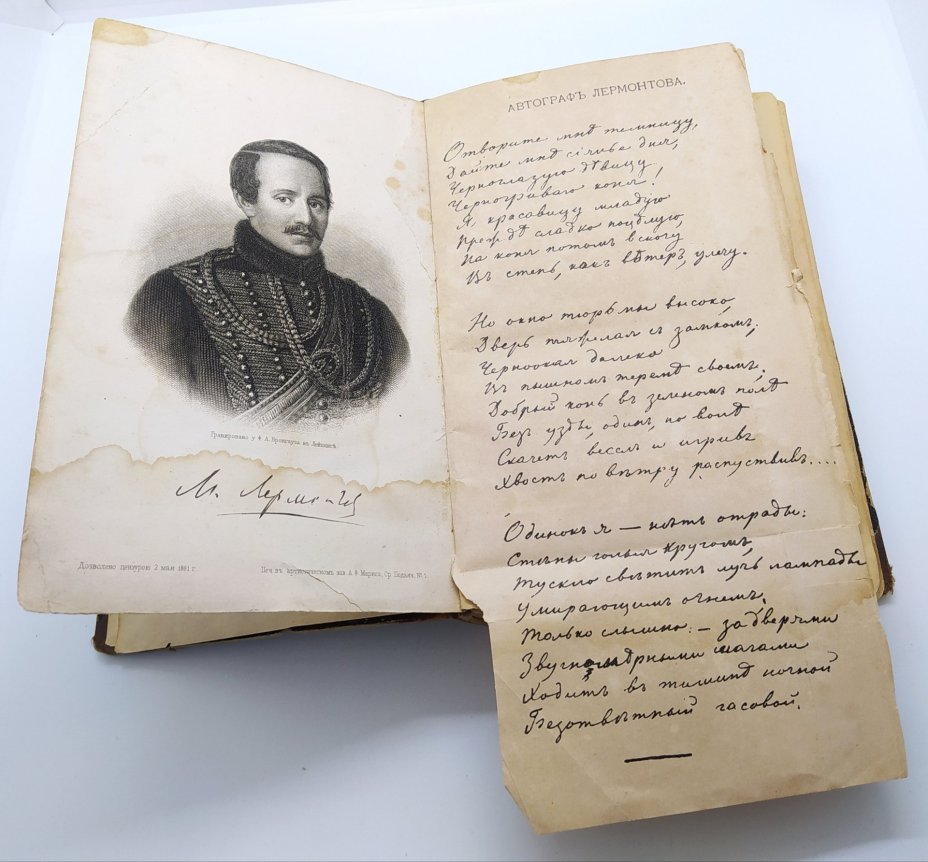 Гравировано у Ф. А. Брокгауза въ Лейпцигѣ
М. Лермонтов
Дозволено цензурою 2 мая 1881 г.
Печ. въ артистическомъ зав. А. Ф. Маркса, Ср. Подъяч. № 1.
АВТОГРАФЪ ЛЕРМОНТОВА.
Отворите мнѣ темницу,
Дайте мнѣ сіянье дня,
Черноглазую дѣвицу
Черногриваго коня!
Я красавицу младую
Прежде сладко поцѣлую,
На коня потомъ вскочу
Въ степь, какъ вѣтеръ, улечу.
Но окно тюрьмы высоко,
Дверь тяжелая съ замкомъ;
Черноокая далеко
Въ пышномъ теремѣ своемъ.
Добрый конь въ зеленомъ полѣ
Безъ узды, одинъ, по волѣ
Скачетъ веселъ и игривъ
Хвостъ по вѣтру распустивъ....
Одинокъ я — нѣтъ отрады:
Стѣны голыя кругомъ,
Тускло свѣтитъ лучъ лампады
Умирающимъ огнемъ.
Только слышно: — за дверями
Звучномѣрными шагами
Ходитъ въ тишинѣ ночной
Безотвѣтный часовой.